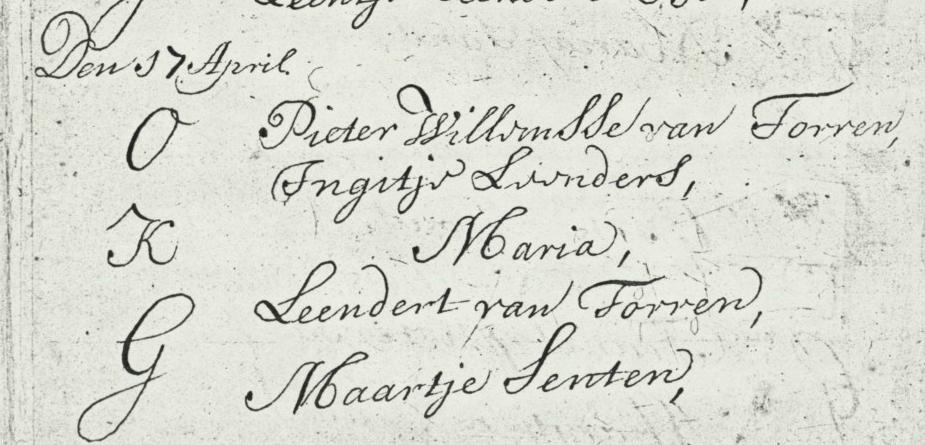 Den 17 April.
O Pieter Willemsse van Torren,
Ingitje Leenders,
K Maria,
G Leendert van Torren,
Maartje Senten,